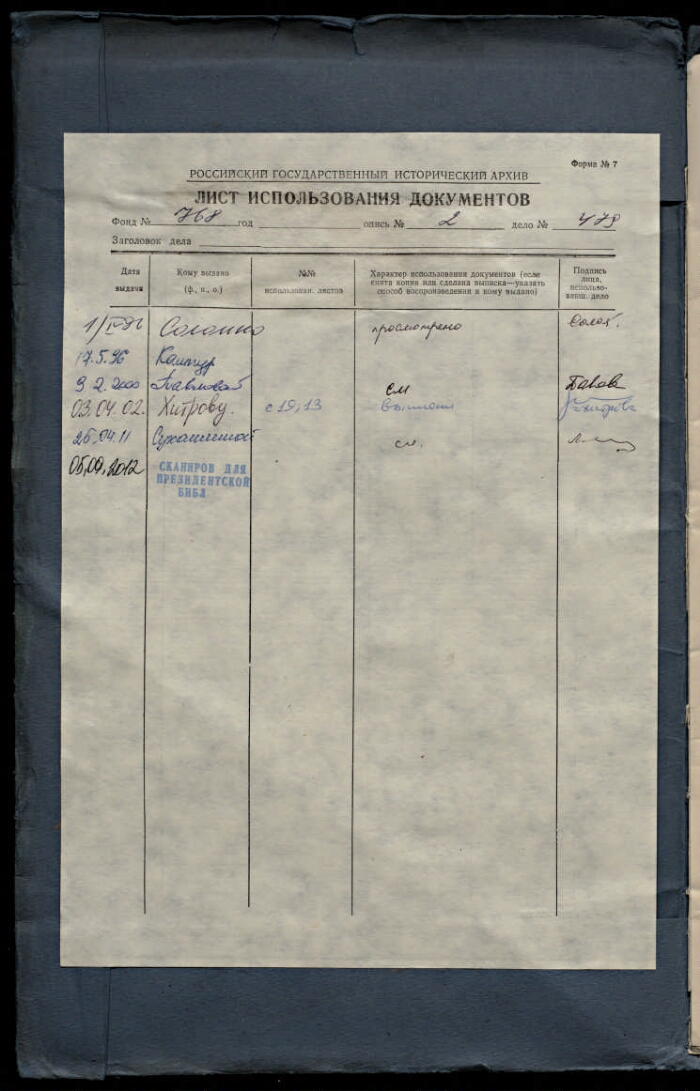 Форма № 7
РОССИЙСКИЙ ГОСУДАРСТВЕННЫЙ ИСТОРИЧЕСКИЙ АРХИВ
ЛИСТ ИСПОЛЬЗОВАНИЯ ДОКУМЕНТОВ
Фонд № 768 год опись № 2 дело № 479
Заголовок дела
Дата выдачи
Кому выдано (ф., и., о.)
№№ использован. листов
Характер использования документов (если снята копия или сделана выписка—указать способ воспроизведения и кому выдано)
Подпись лица, использовавш. дело
просмотрено
17.5.96
9.2.2000 Павловой см
03.04.02. Хитрову. с 19, 13
26.04.11 см.
05.09.2012 СКАНИРОВ ДЛЯ
ПРЕЗИДЕНТСКОЙ
БИБЛ